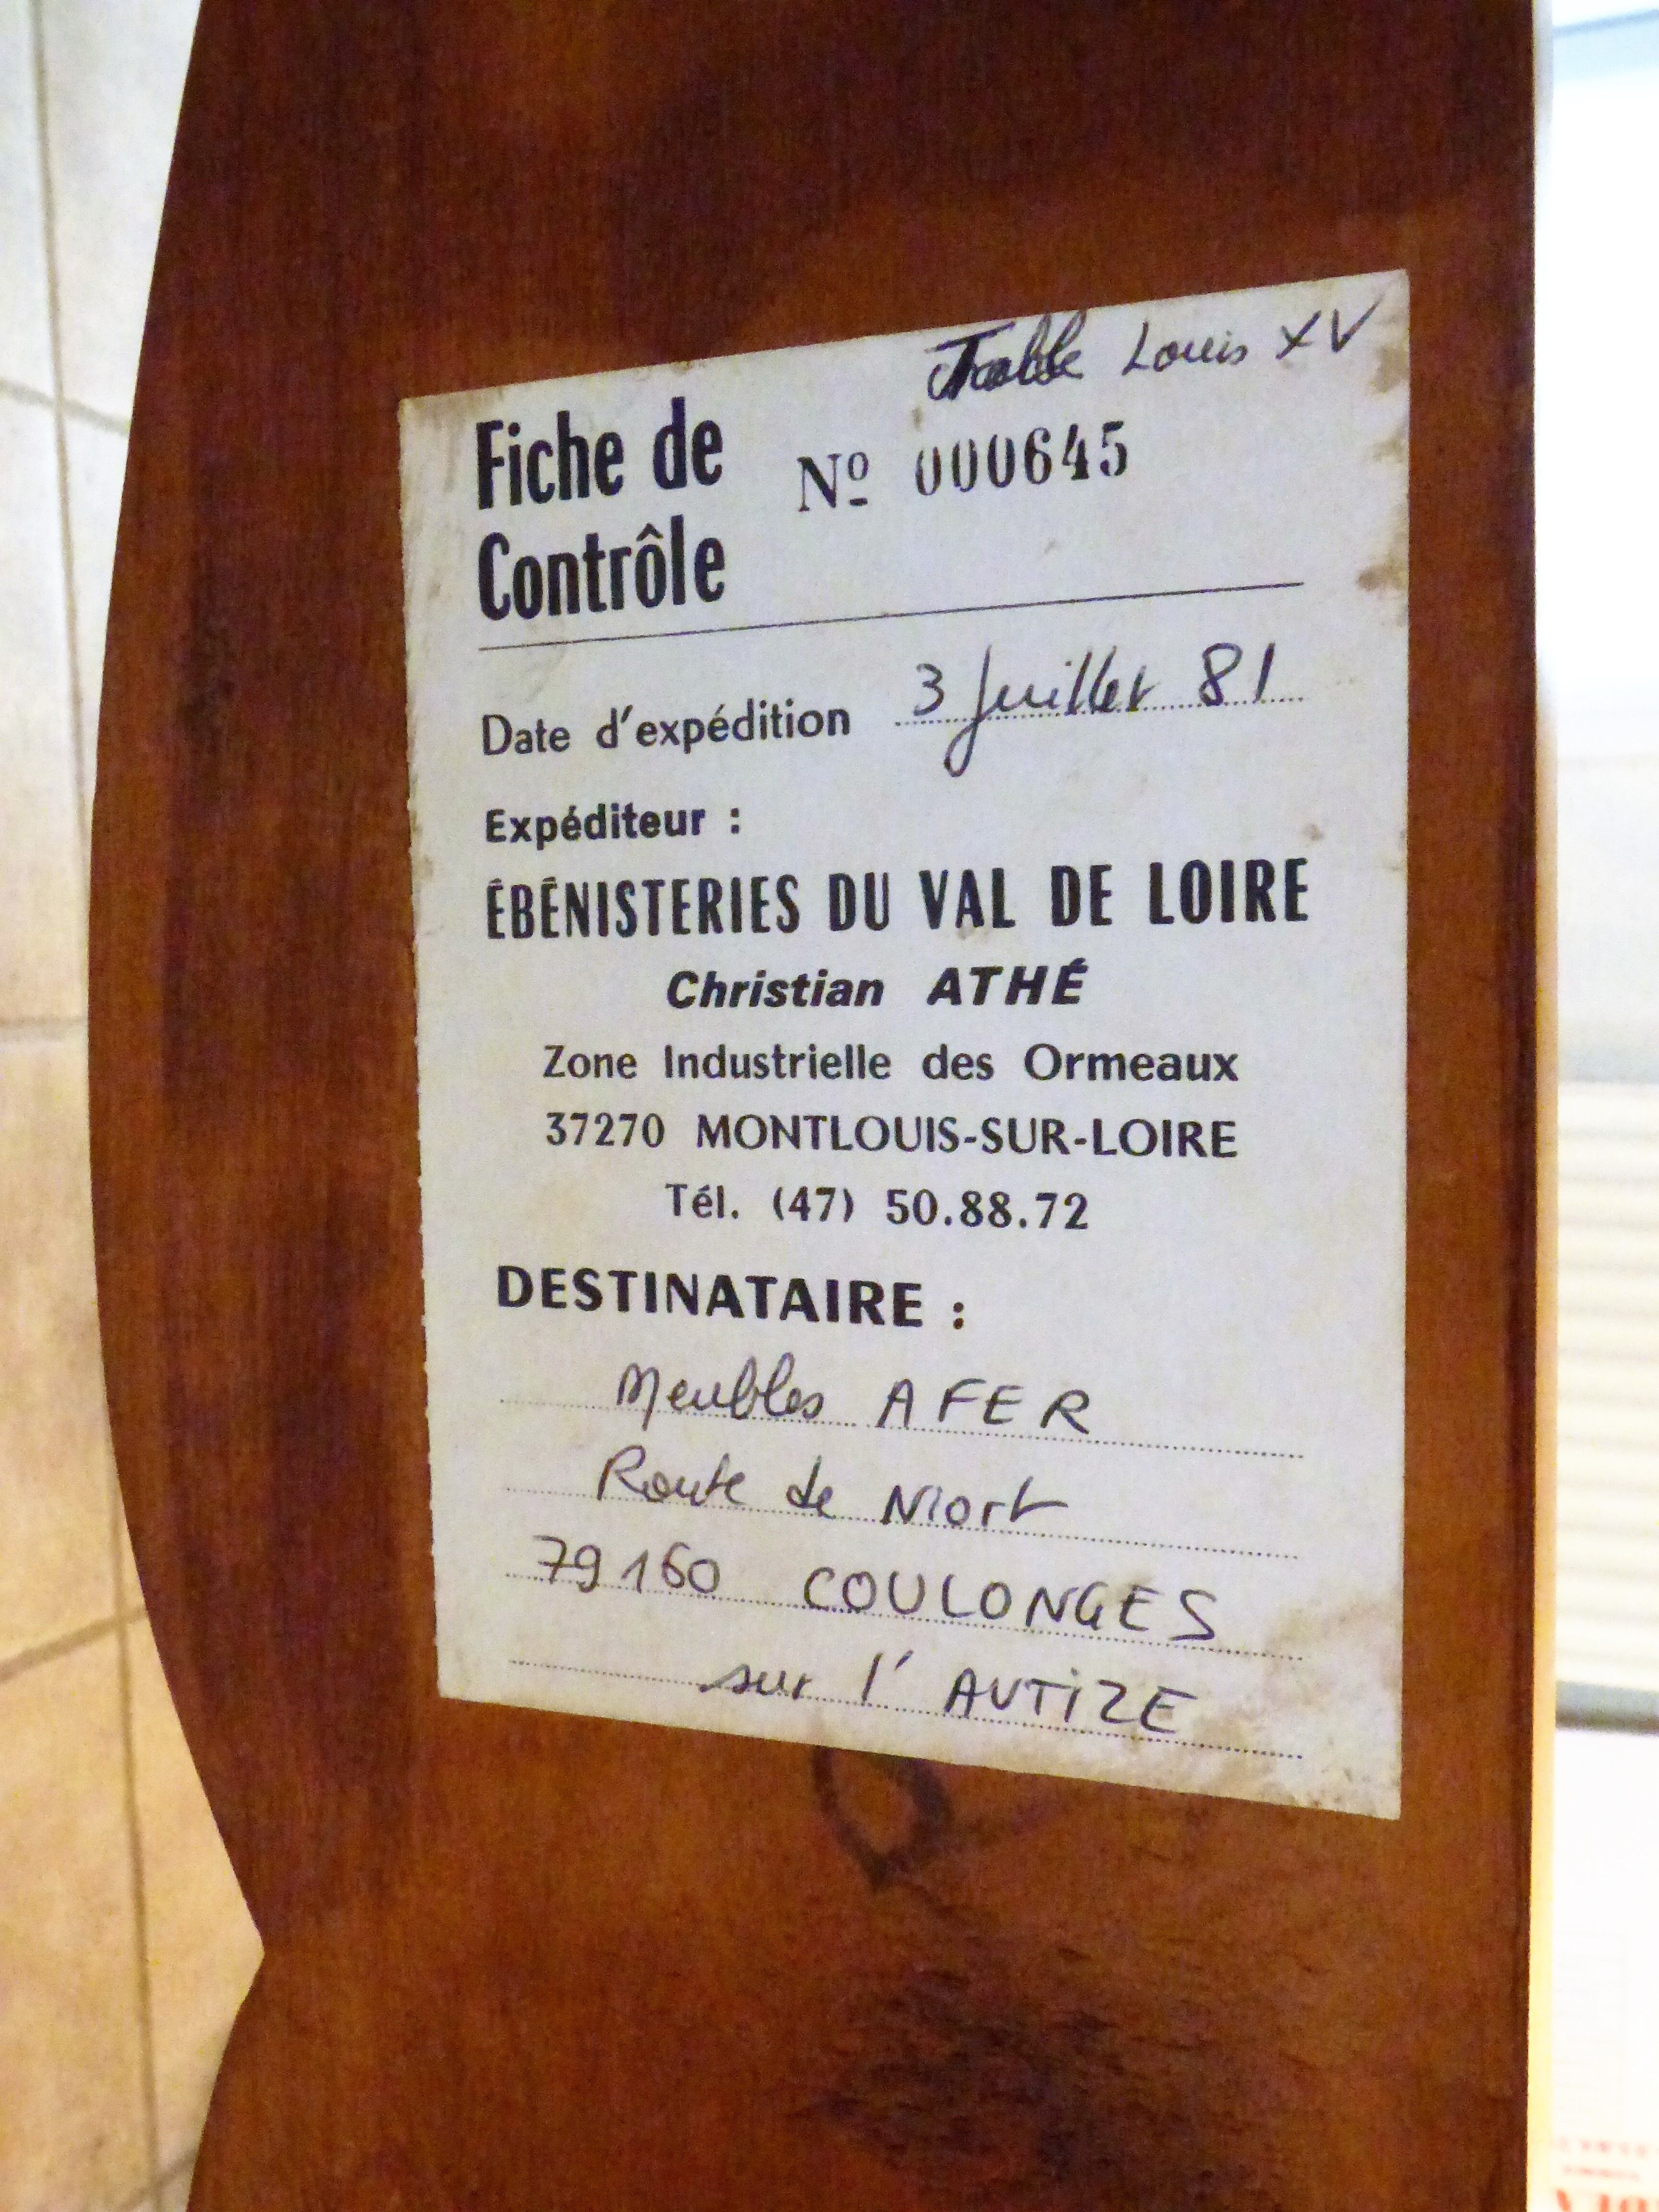 Table Louis XV
Fiche de
Contrôle
Nº 000645
Date d'expédition 3 Juillet 81
Expéditeur :
ÉBÉNISTERIES DU VAL DE LOIRE
Christian ATHÉ
Zone Industrielle des Ormeaux
37270 MONTLOUIS-SUR-LOIRE
Tél. (47) 50.88.72
DESTINATAIRE :
Meubles AFER
Route de Niort
79160 COULONGES
sur l'AUTIZE